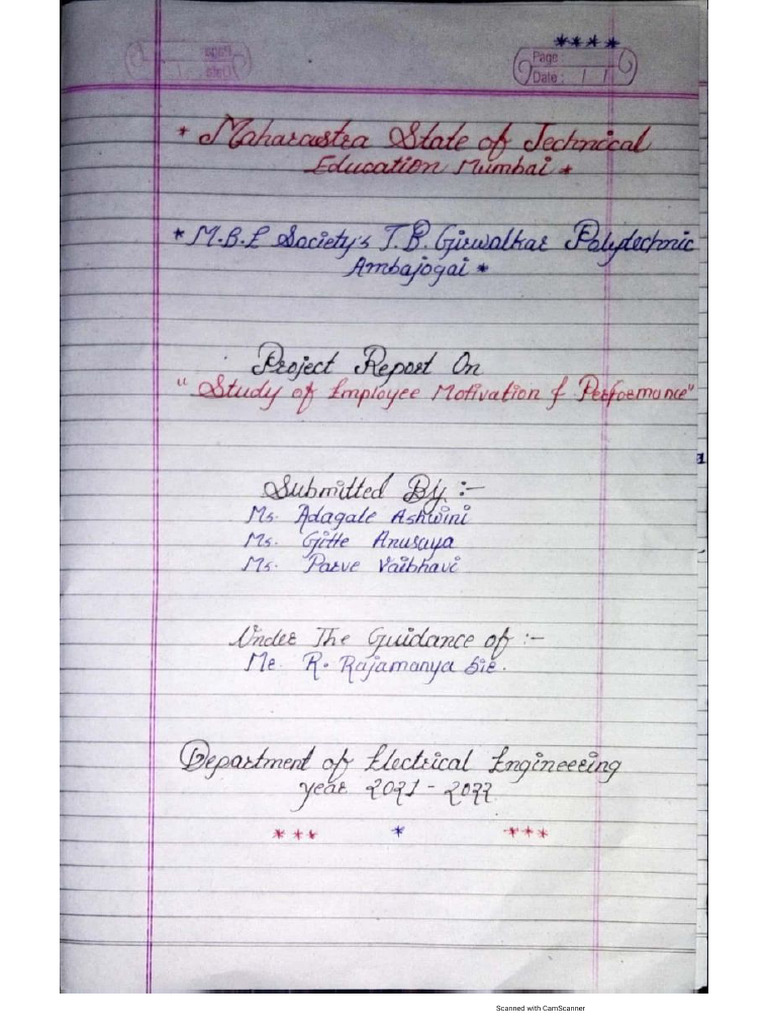 ****
Page
Date : / /
* Maharastra State of Technical
Education Mumbai *
* M.B.E Society's T.B. Girwalkar Polytechnic
Ambajogai *
Project Report On
"Study of Employee Motivation & Performance"
Submitted By :-
Ms. Adagale Ashwini
Ms. Gitte Anusaya
Ms. Parve Vaibhavi
Under The Guidance of :-
Mr. R. Rajamanya Sir.
Department of Electrical Engineering
year 2021 - 2022
*** * ***
Scanned with CamScanner